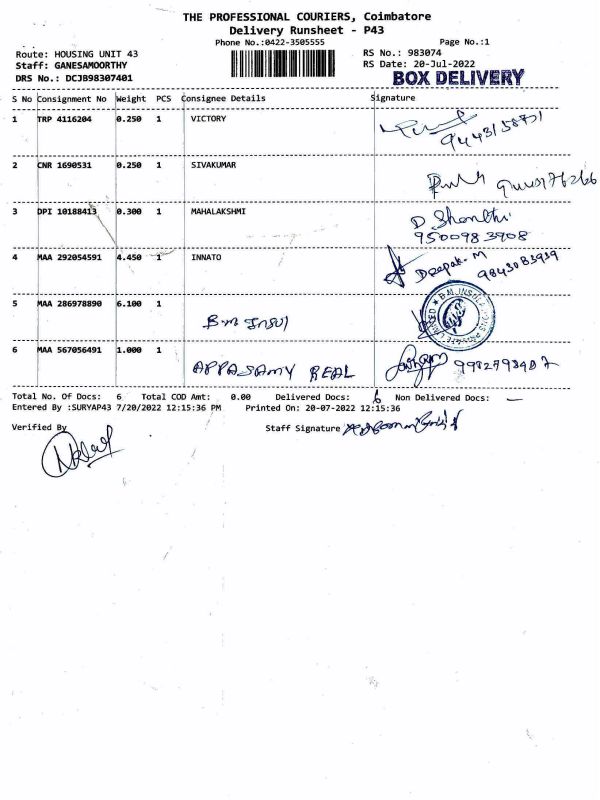 THE PROFESSIONAL COURIERS, Coimbatore
Delivery Runsheet - P43
Phone No.:0422-3505555 Page No.:1
Route: HOUSING UNIT 43 RS No.: 983074
Staff: GANESAMOORTHY RS Date: 20-Jul-2022
DRS No.: DCJB98307401 BOX DELIVERY
S No Consignment No Weight PCS Consignee Details Signature
1 TRP 4116204 0.250 1 VICTORY
2 CNR 1690531 0.250 1 SIVAKUMAR
3 DPI 10188413 0.300 1 MAHALAKSHMI D Shanthi
9500983908
4 MAA 292054591 4.450 1 INNATO Deepak. M 9843083939
5 MAA 286978890 6.100 1
6 MAA 567056491 1.000 1 APPASAMY REAL
Total No. Of Docs: 6 Total COD Amt: 0.00 Delivered Docs: 6 Non Delivered Docs: —
Entered By :SURYAP43 7/20/2022 12:15:36 PM Printed On: 20-07-2022 12:15:36
Verified By Staff Signature